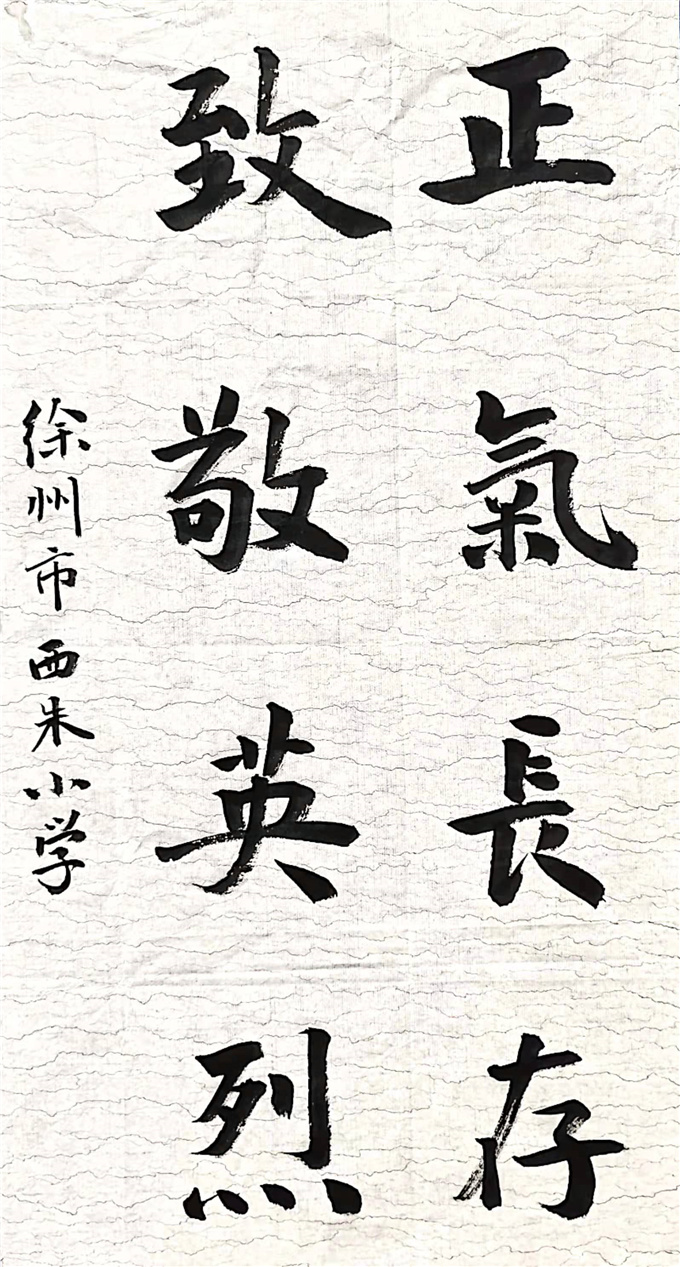 正氣長存
致敬英烈
徐州市西朱小学